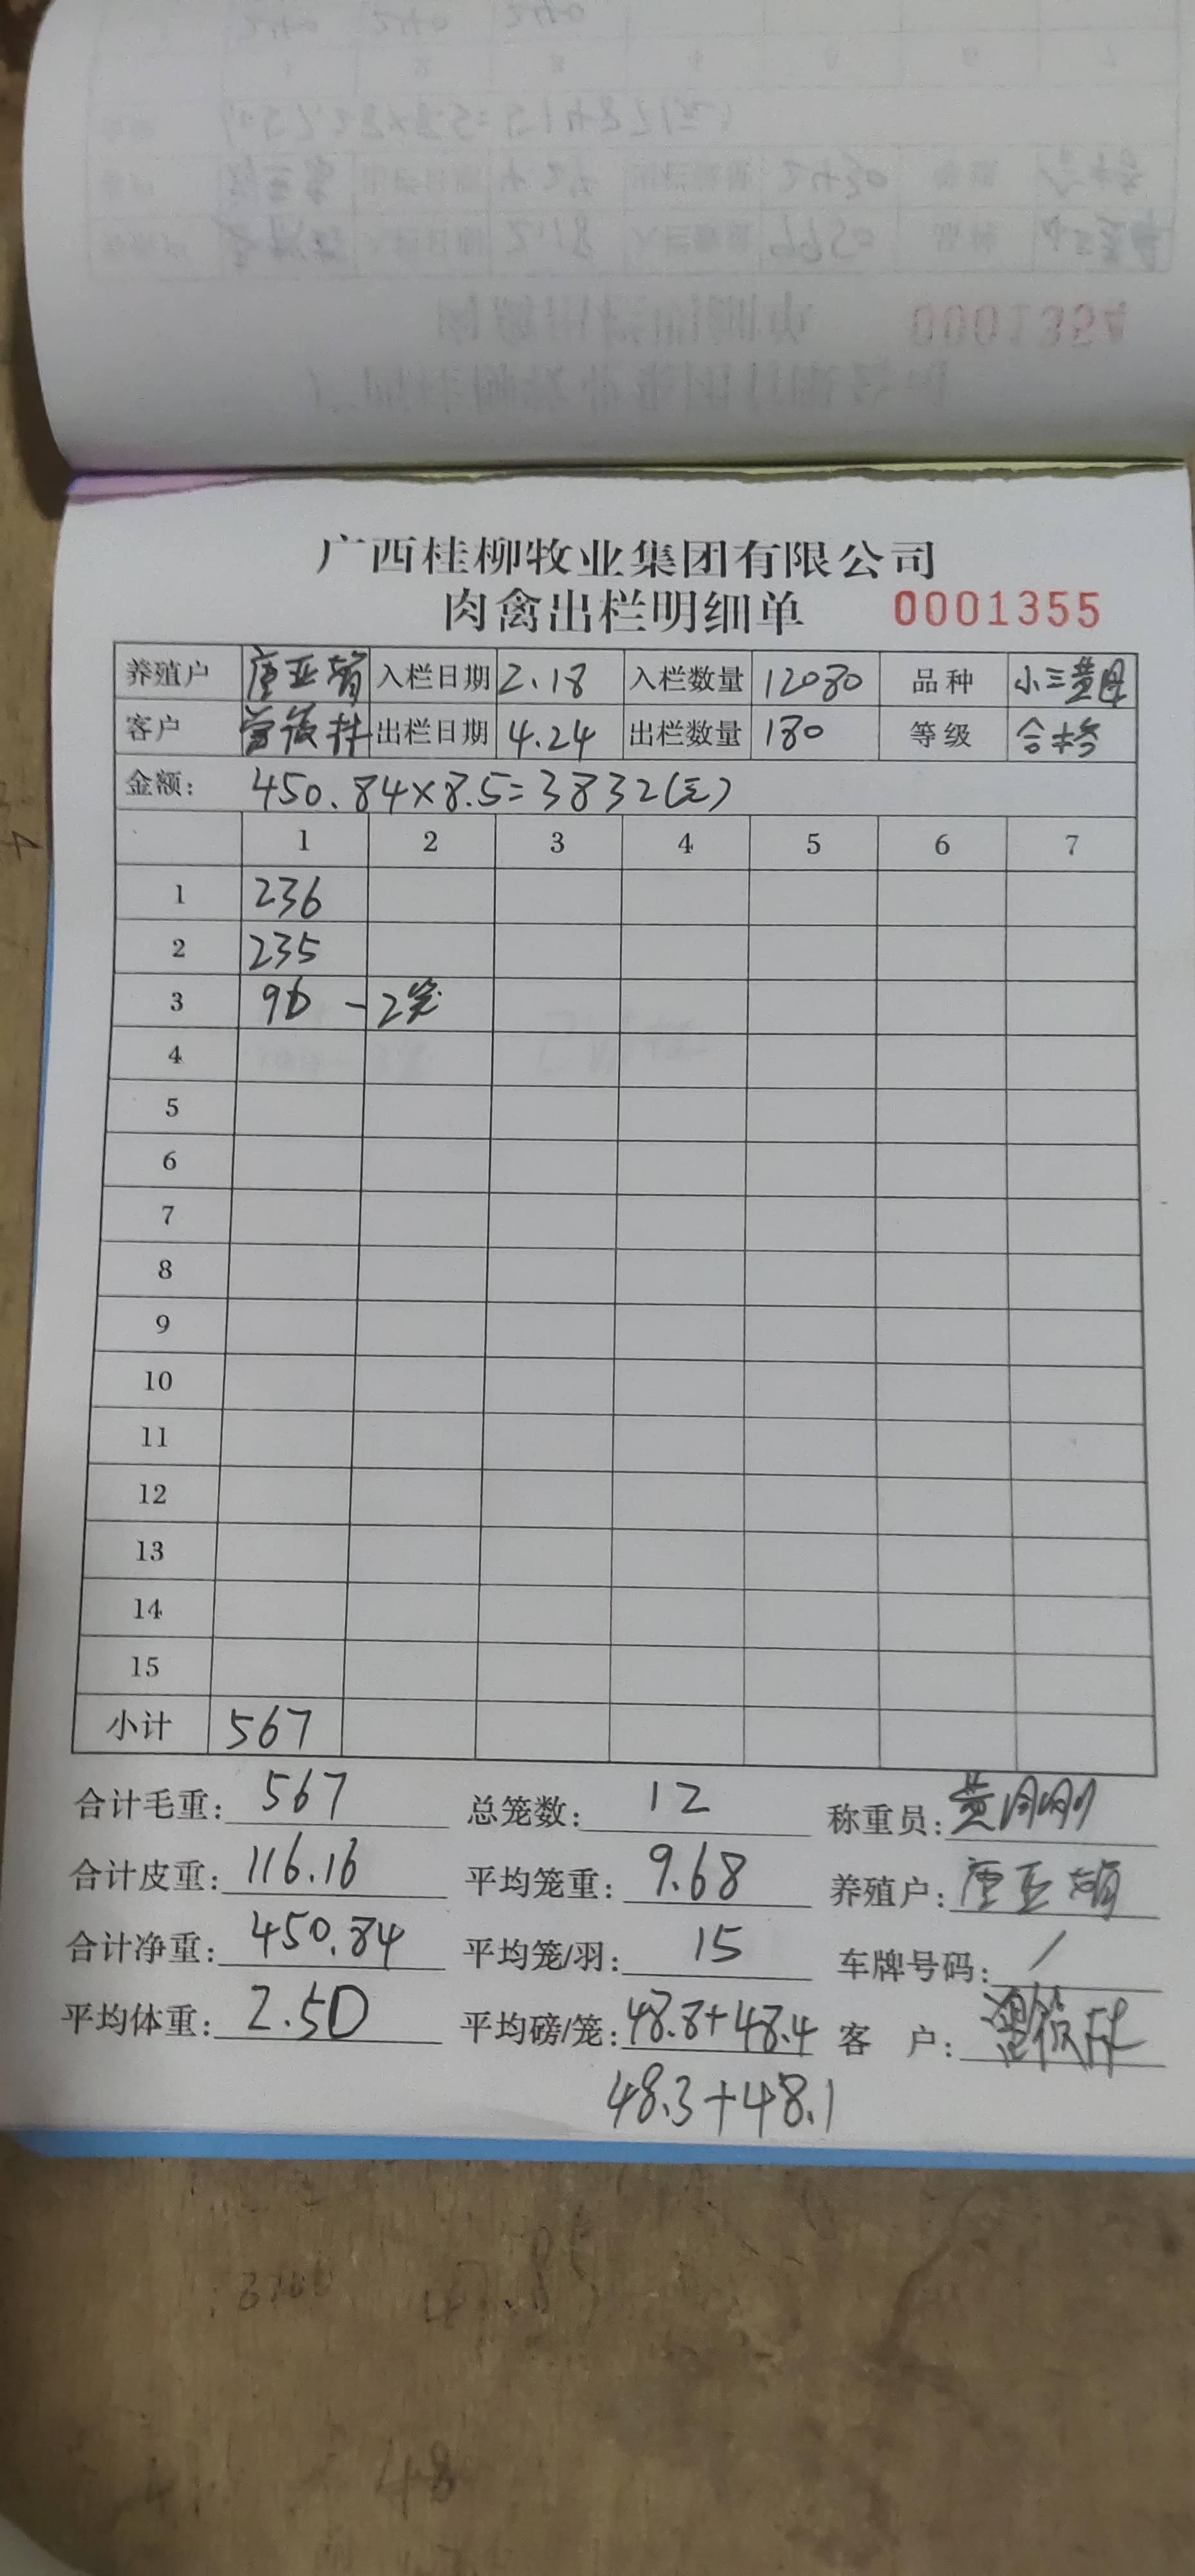 0001354
广西桂柳牧业集团有限公司
肉禽出栏明细单 0001355
养殖户 唐亚娟 入栏日期 2.18 入栏数量 12080 品种 小三黄母
客户 出栏日期 4.24 出栏数量 180 等级 合格
金额: 450.84×8.5=3832(元)
1 2 3 4 5 6 7
1 236
2 235
3 96 -2笼
4
5
6
7
8
9
10
11
12
13
14
15
小计 567
合计毛重: 567 总笼数: 12 称重员: 黄刚刚
合计皮重: 116.16 平均笼重: 9.68 养殖户: 唐亚娟
合计净重: 450.84 平均笼/羽: 15 车牌号码: /
平均体重: 2.50 平均磅/笼: 48.8+48.4 客 户:
48.3+48.1